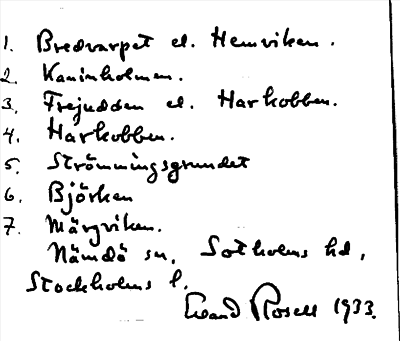 1. Bredvarpet el. Hemviken.
2. Kaninholmen.
3. Frejudden el. Harkobben.
4. Harkobben.
5. Strömmingsgrundet
6. Björken
7. Märgviken.
Nämdö sn, Sotholms hd,
Stockholms l.
Rosell 1933.